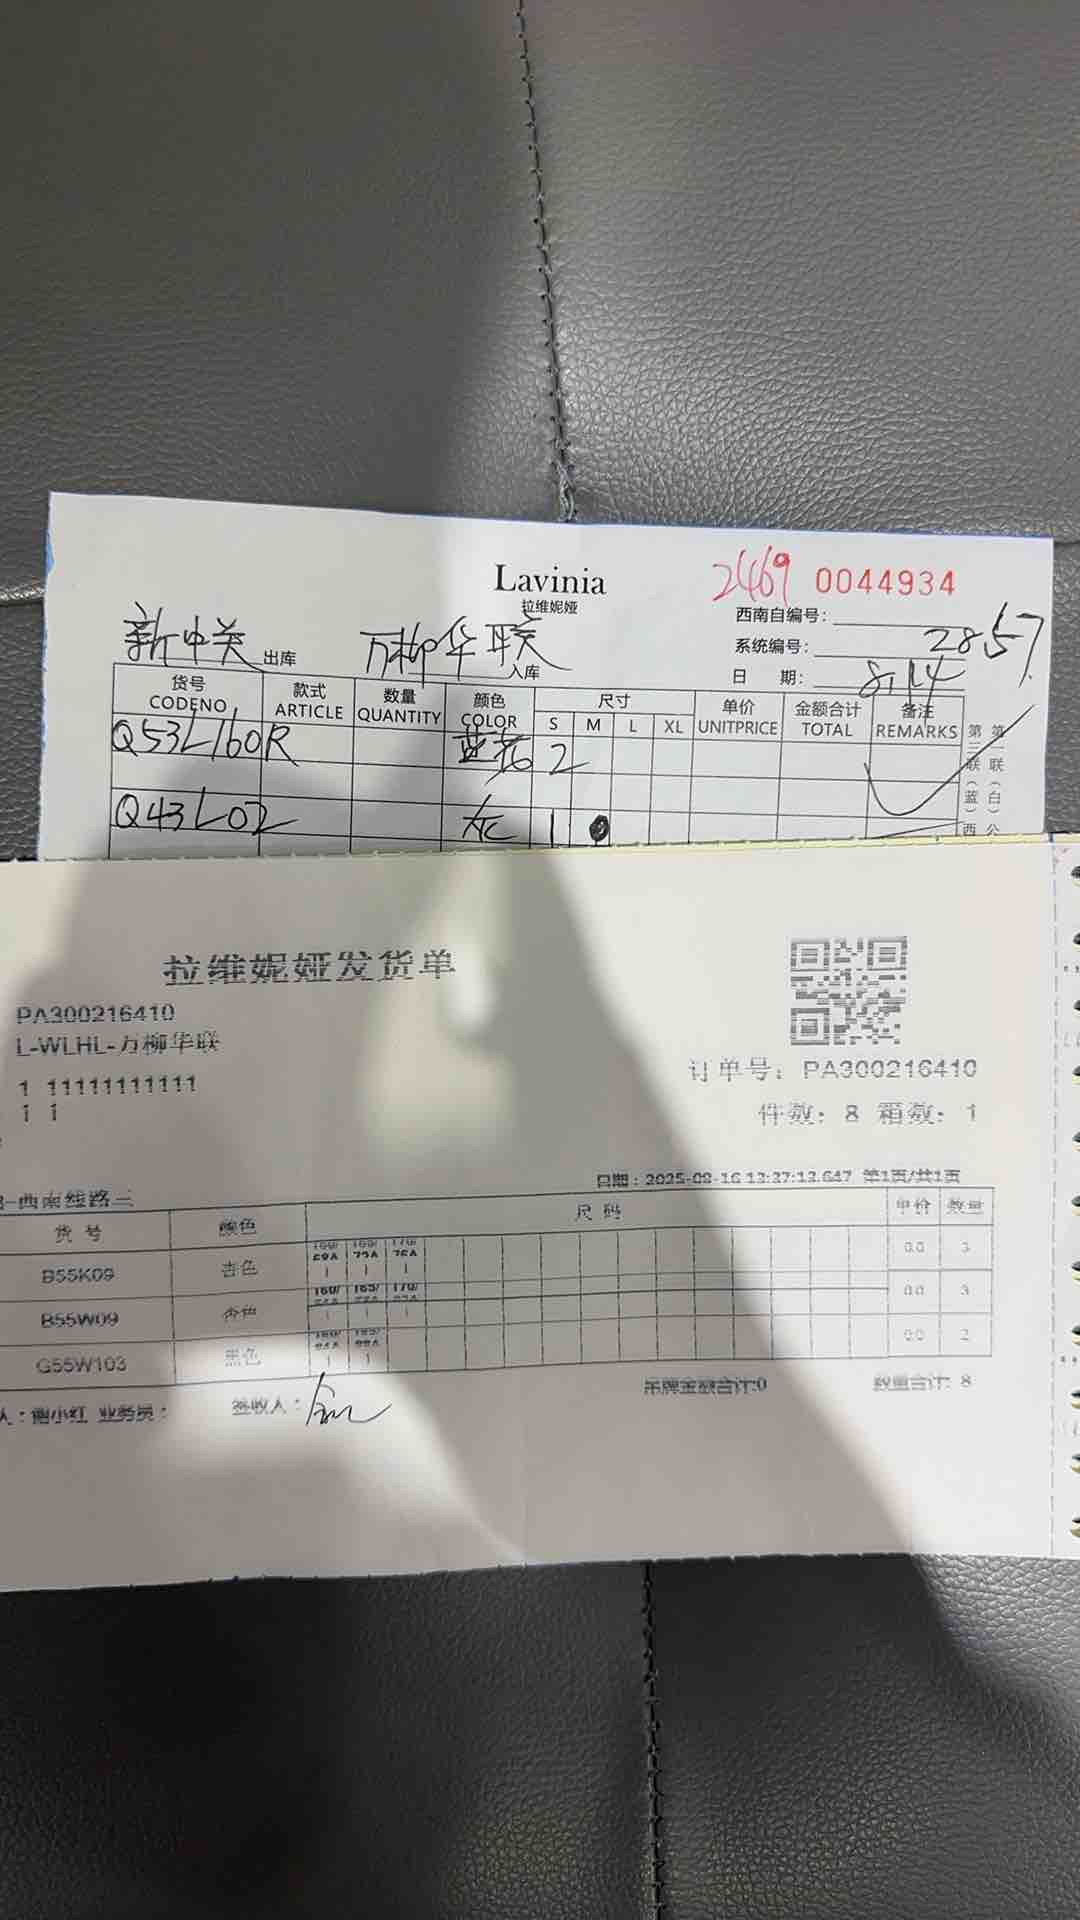 Lavinia
拉维妮娅
2469 0044934
西南自编号:
系统编号: 2857
日 期: 8.14
新中关 出库 万柳华联 入库
货号 款式 数量 颜色 尺寸 单价 金额合计 备注
CODENO ARTICLE QUANTITY COLOR S M L XL UNITPRICE TOTAL REMARKS
Q53L160R 蓝花 2
Q43L02 灰 1
第三联(蓝)西
第一联(白)公
拉维妮娅发货单
PA300216410
L-WLHL-万柳华联
1 11111111111
1 1
订单号: PA300216410
件数: 8 箱数: 1
-西南线路三
日期: 2025-08-16 13:37:13.647 第1页/共1页
货 号 颜色 尺 码 单价 数量
B55K09 杏色 1 1 1 0.0 3
160/ 165/ 170/
B55W09 杏色 0.0 3
G55W103 黑色 1 1 0.0 2
吊牌金额合计:0 数量合计: 8
人: 小红 业务员: 签收人: